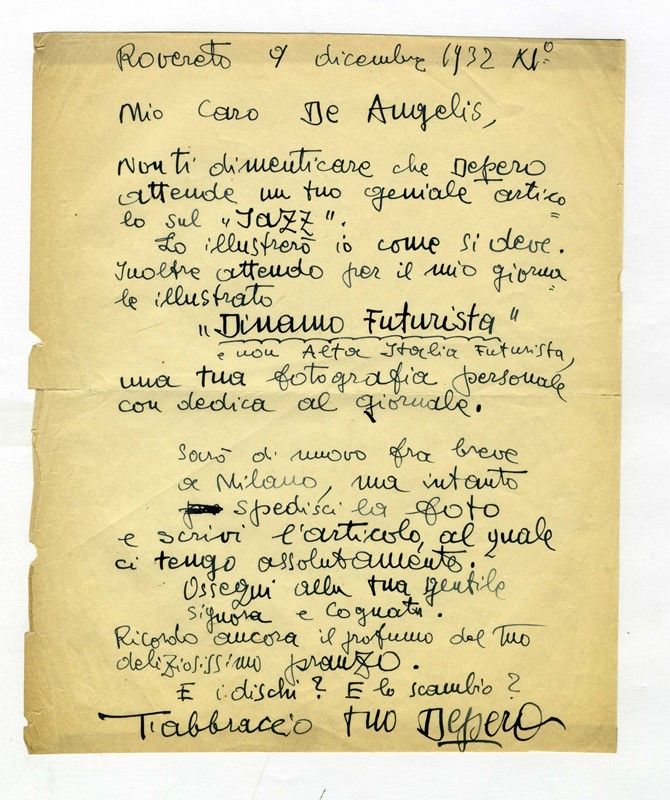 Rovereto 9 dicembre 1932 XI°
Mio Caro De Angelis,
Non ti dimenticare che Depero
attende un tuo geniale artico=
lo sul „Jazz".
Lo illustrerò io come si deve.
Inoltre attendo per il mio giorna=
le illustrato
„Dinamo Futurista"
e non Alta Italia Futurista,
una tua fotografia personale
con dedica al giornale.
Sarò di nuovo fra breve
a Milano, ma intanto
spedisci la foto
e scrivi l'articolo, al quale
ci tengo assolutamente.
Ossequi alla tua gentile
signora e Cognata.
Ricordo ancora il profumo del tuo
deliziosissimo pranzo.
E i dischi? E lo scambio?
T'abbraccio tuo Depero